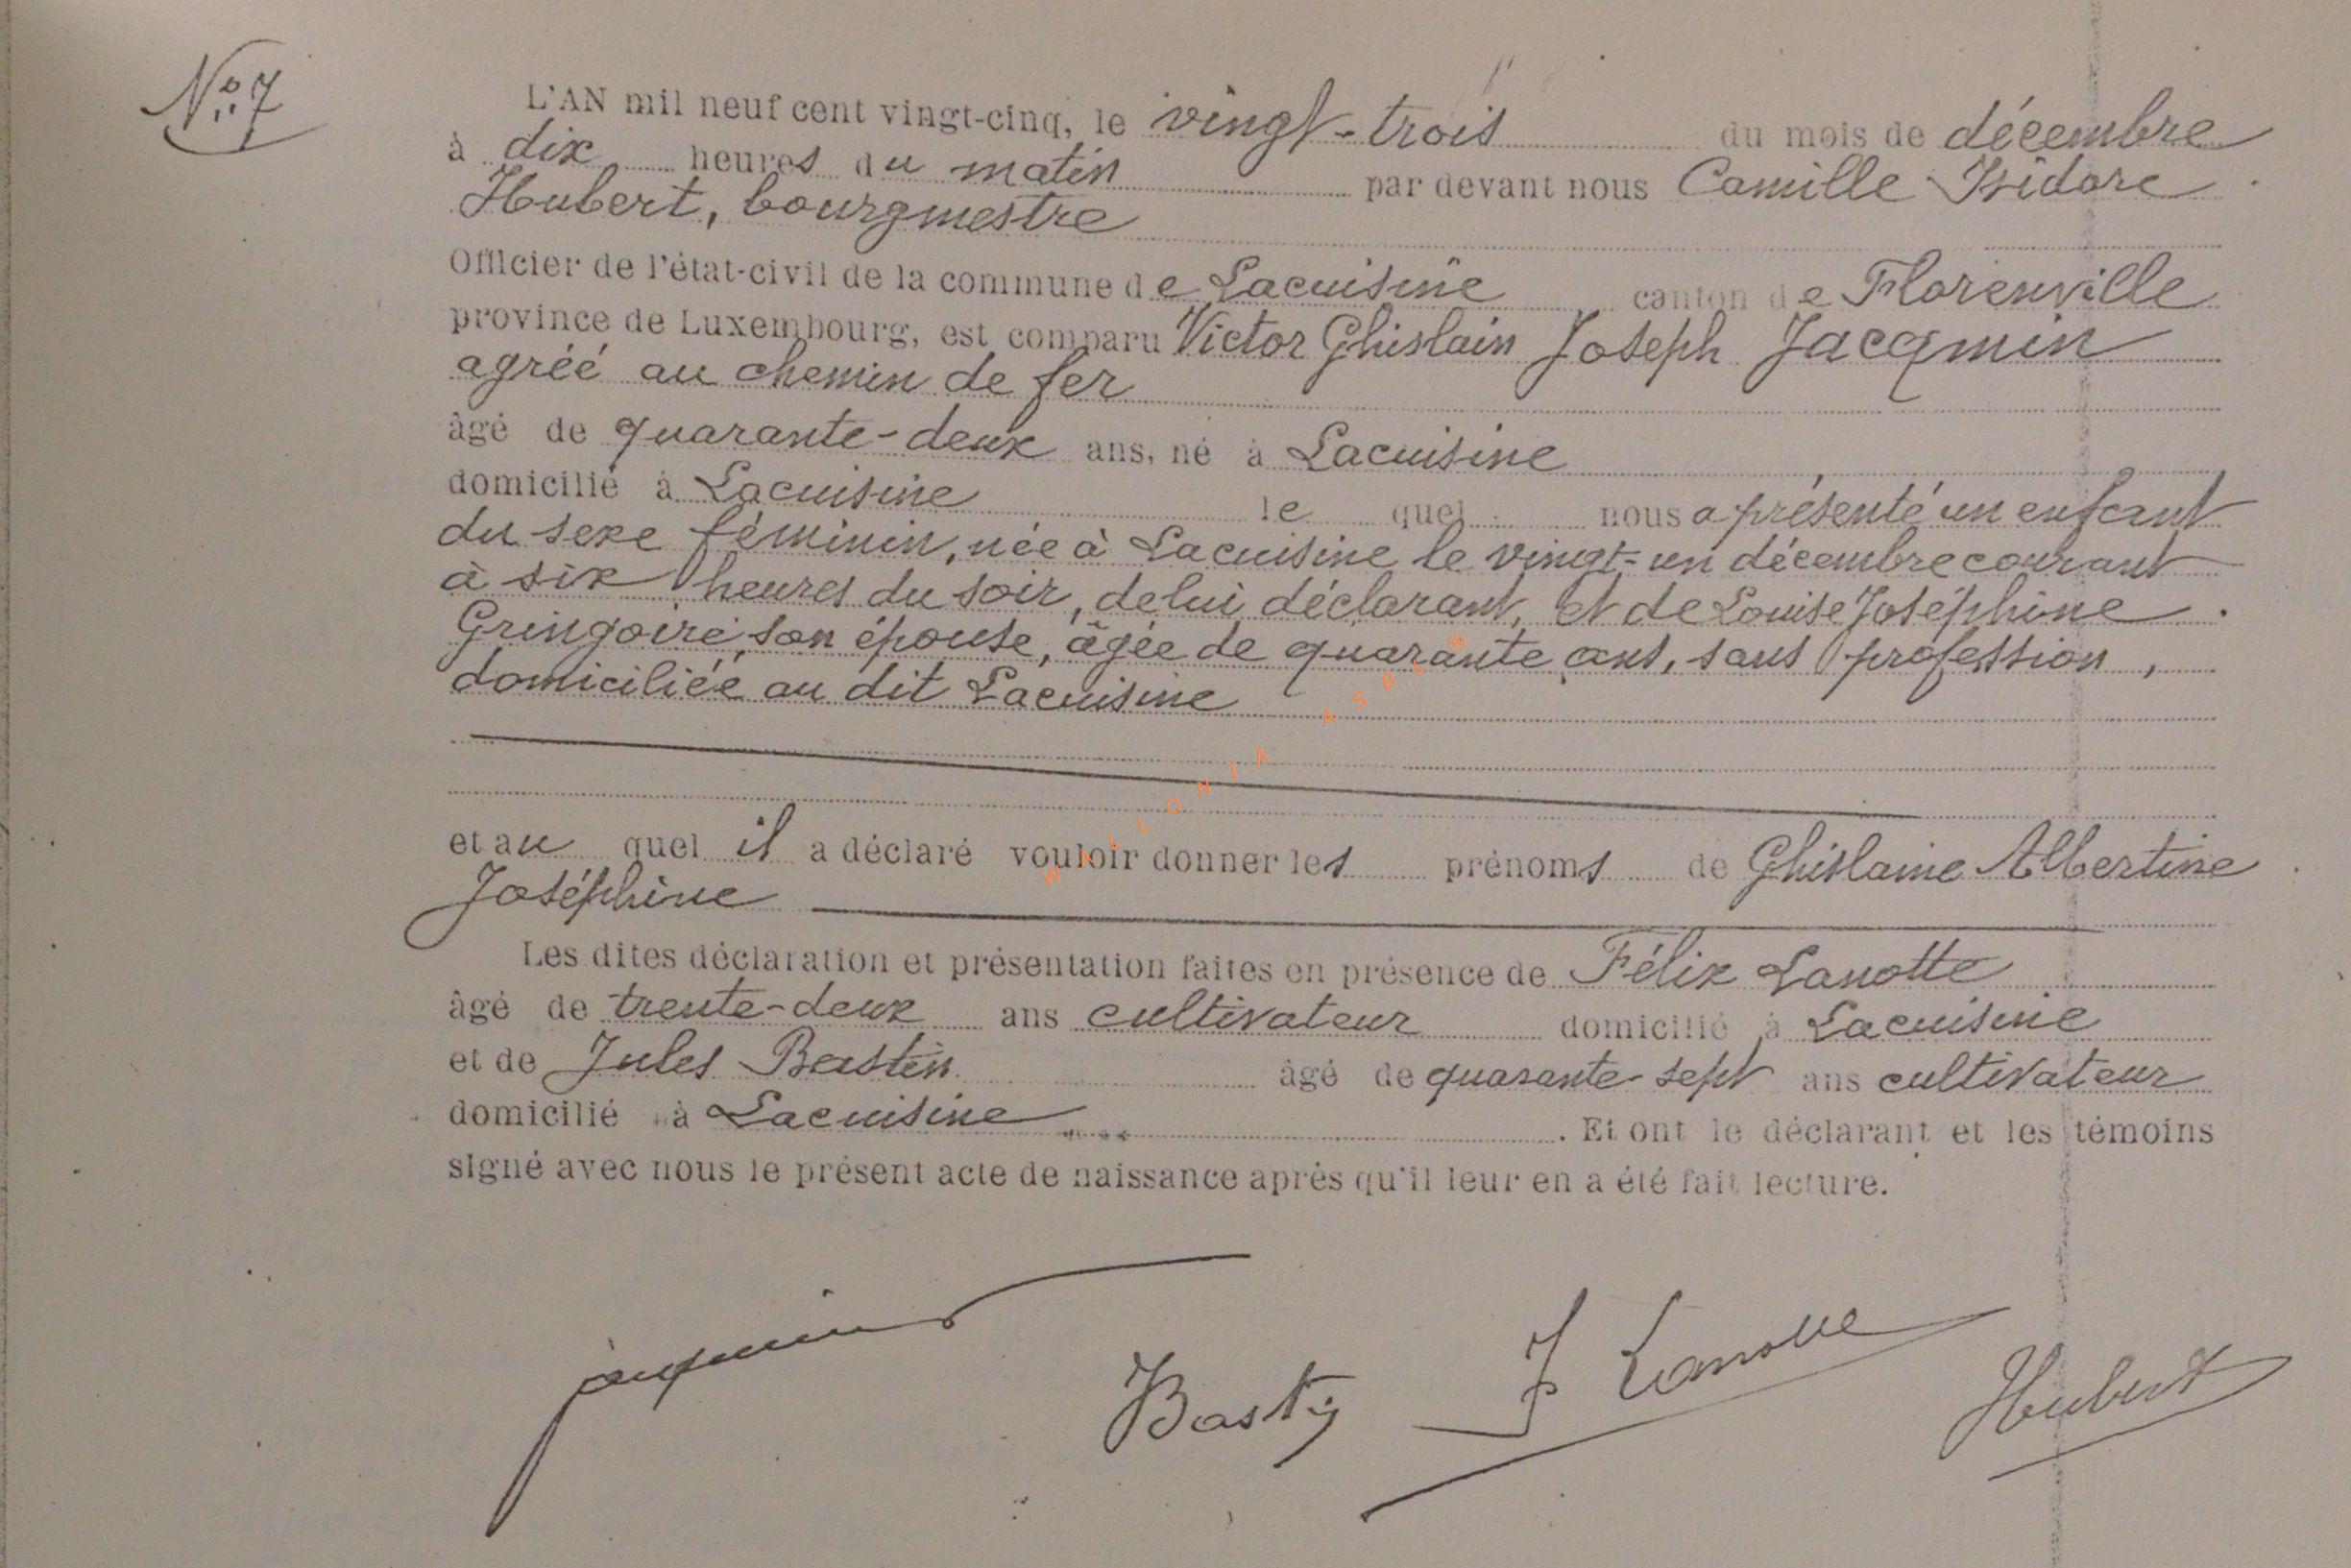 N° 7
L'AN mil neuf cent vingt-cinq, le vingt-trois du mois de décembre
à dix heures du matin par devant nous Camille Isidore
Hubert, bourgmestre
Officier de l'état-civil de la commune de Lacuisine canton de Florenville
province de Luxembourg, est comparu Victor Ghislain Joseph Jacqmin
agréé au chemin de fer
âgé de quarante-deux ans, né à Lacuisine
domicilié à Lacuisine le quel nous a présenté un enfant
du sexe féminin, née à Lacuisine le vingt-un décembre courant
à six heures du soir, de lui déclarant, et de Louise Joséphine
Gringoire, son épouse, âgée de quarante ans, sans profession,
domiciliée au dit Lacuisine
et au quel il a déclaré vouloir donner les prénoms de Ghislaine Albertine
Joséphine
Les dites déclaration et présentation faites en présence de Félix Lanotte
âgé de trente-deux ans cultivateur domicilié à Lacuisine
et de Jules Bastin âgé de quarante-sept ans cultivateur
domicilié à Lacuisine. Et ont le déclarant et les témoins
signé avec nous le présent acte de naissance après qu'il leur en a été fait lecture.
jacqmin Bastin F Lanotte Hubert
WALLONIA ASBL